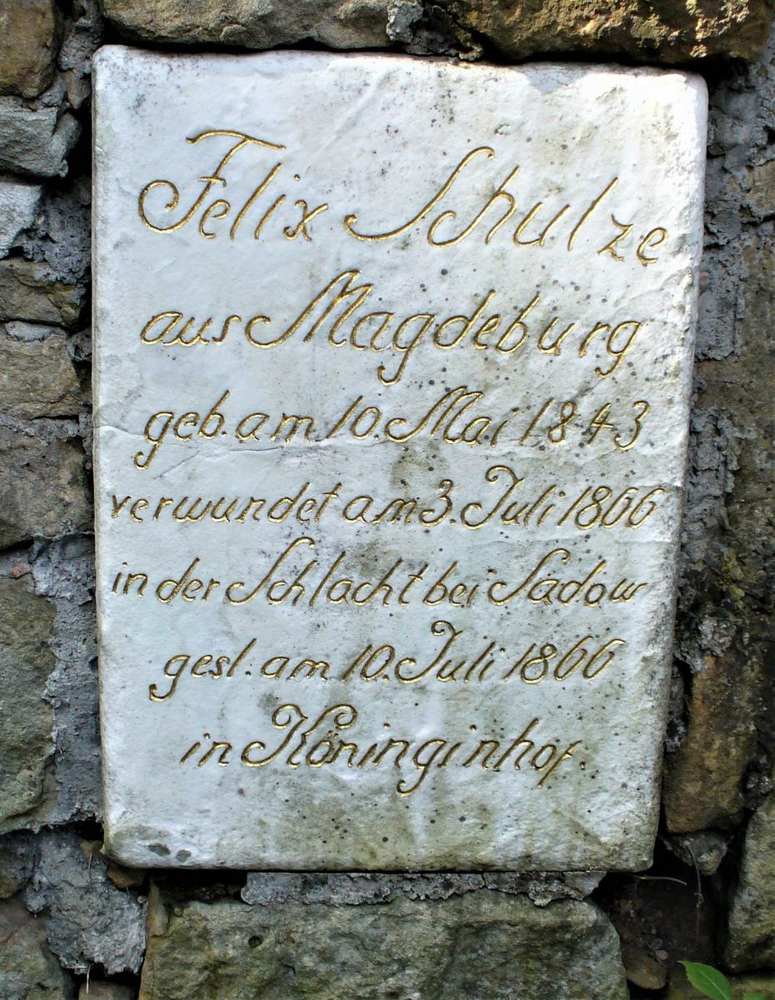 Felix Schulze
aus Magdeburg
geb. am 10. Mai 1843
verwundet am 3. Juli 1866
in der Schlacht bei Sadow
gesl. am 10. Juli 1866
in Köninginhof.